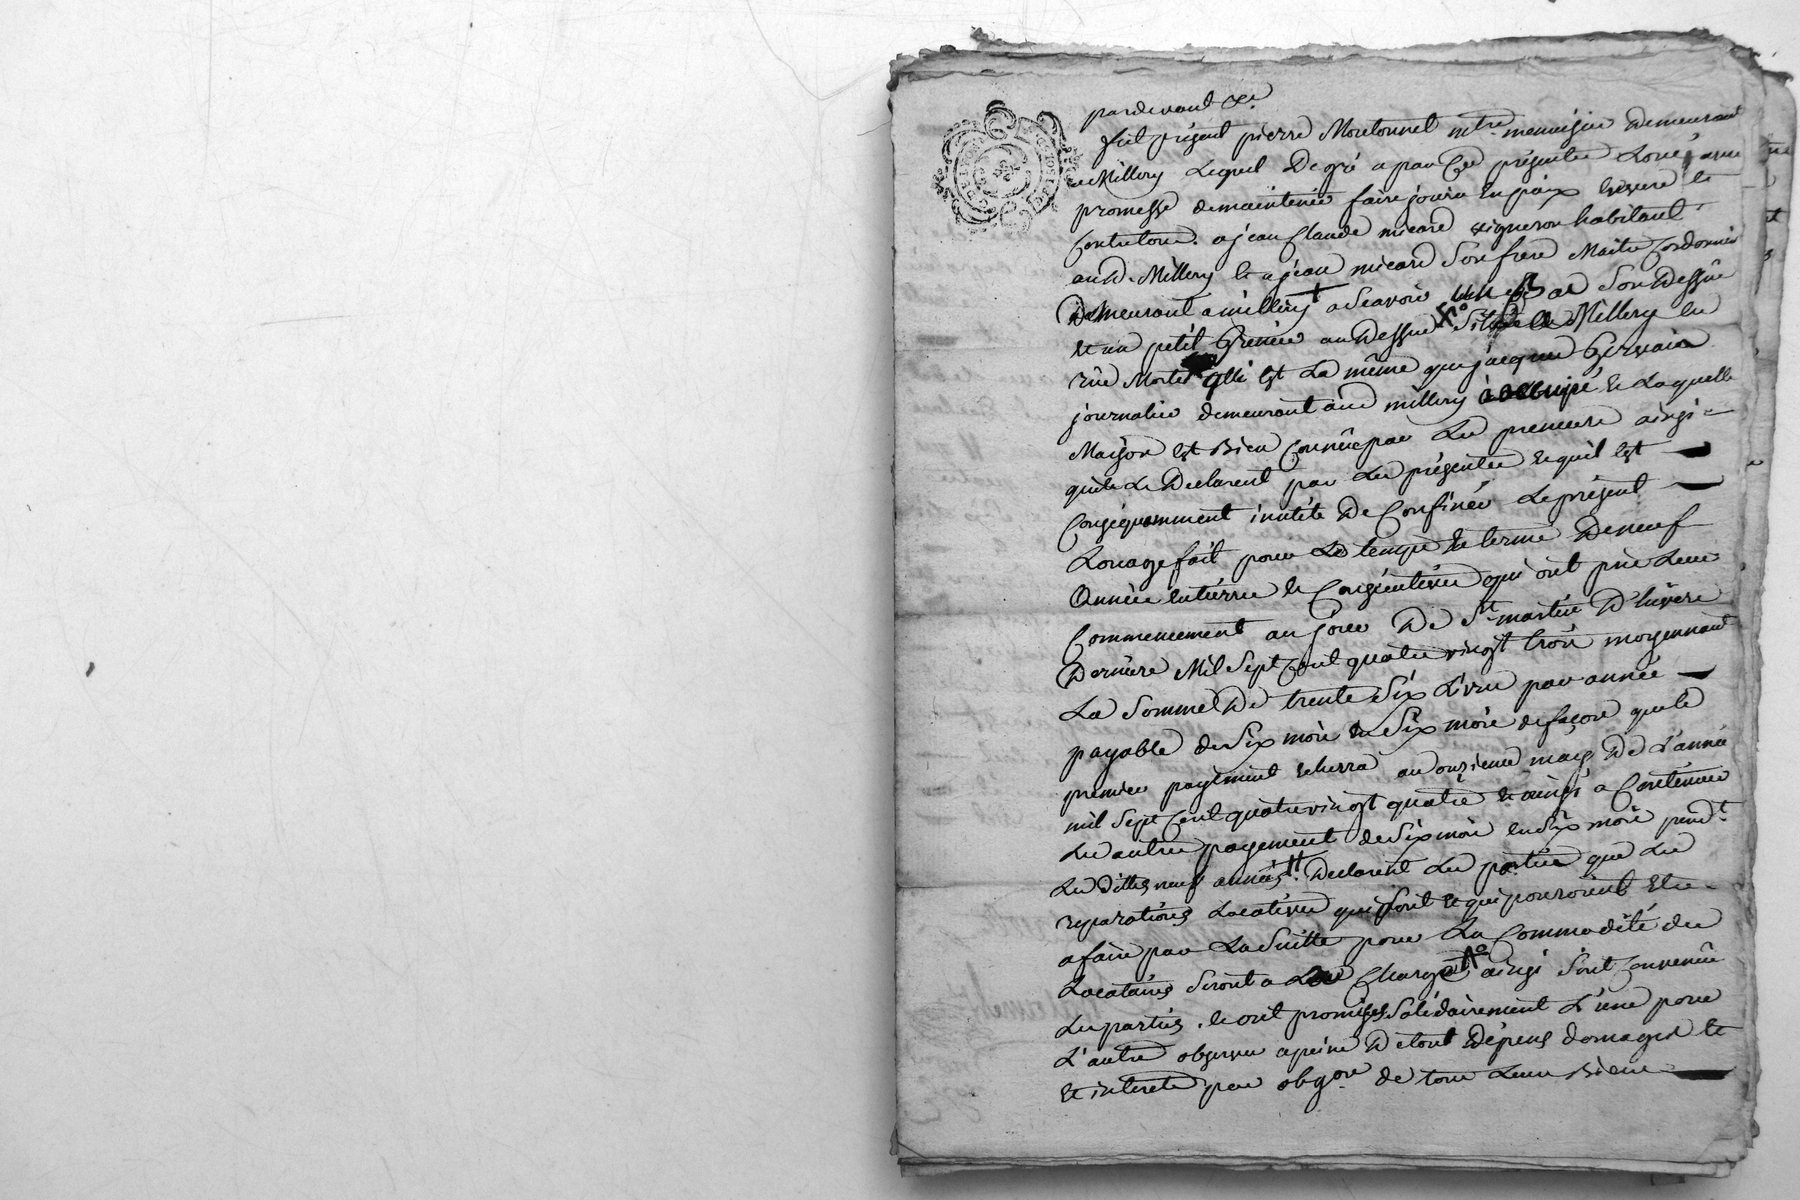 pardevant &c.
fut présent pierre Moutonnet mtre menuisier demeurant
a Millery Lequel De gré a par Ces présentes Loué avec
promesse de maintenir faire jouir En paix Envers et
Contre tous. a jean Claude micard vigneron habitant
aud. Millery et a jean micard Son frere Maitre Cordonnier
Demeurant a millery + a Scavoir un bas Son Dessus
Et un petit Grenier au Dessus Situé a Millery En
rüe Morte qlle Est La même que jacques Gervais
journalier demeurant aud millery à occupé Et Laquelle
Maison Est Bien Connüe par Les preneurs ainsi
quils Le Declarent par Les présentes Et quil Est
Conséquemment inutile De Confiner Le présent
Louage fait pour Le temps Et terme De neuf
Années Entierres Et Consécutives qui ont pris Leur
Commencement au jour De St martin D'hivers
Derniere Mil Sept Cent quatre vingt trois moyennant
La Somme De trente Six Livres par année
payable de Six mois En Six mois de façon que le
premier payement Echerra au onzieme mars De L'année
mil Sept Cent quatre vingt quatre Et ainsi a Continuer
Les autres payement de Six mois En Six mois pendt.
Les dittes neuf années ++ Declarent Les parties que Les
reparations Locatives qui Sont Et qui pourroient Etre
a faire par La Suitte pour La Commodité des
Locataires Seront a Leur Charge ainsi Sont Convenües
Les parties. Et ont promises Solidairement L'une pour
L'autre observer a peine De tout Dépens domages Et
Et interets par obgon. de tous Leurs Biens